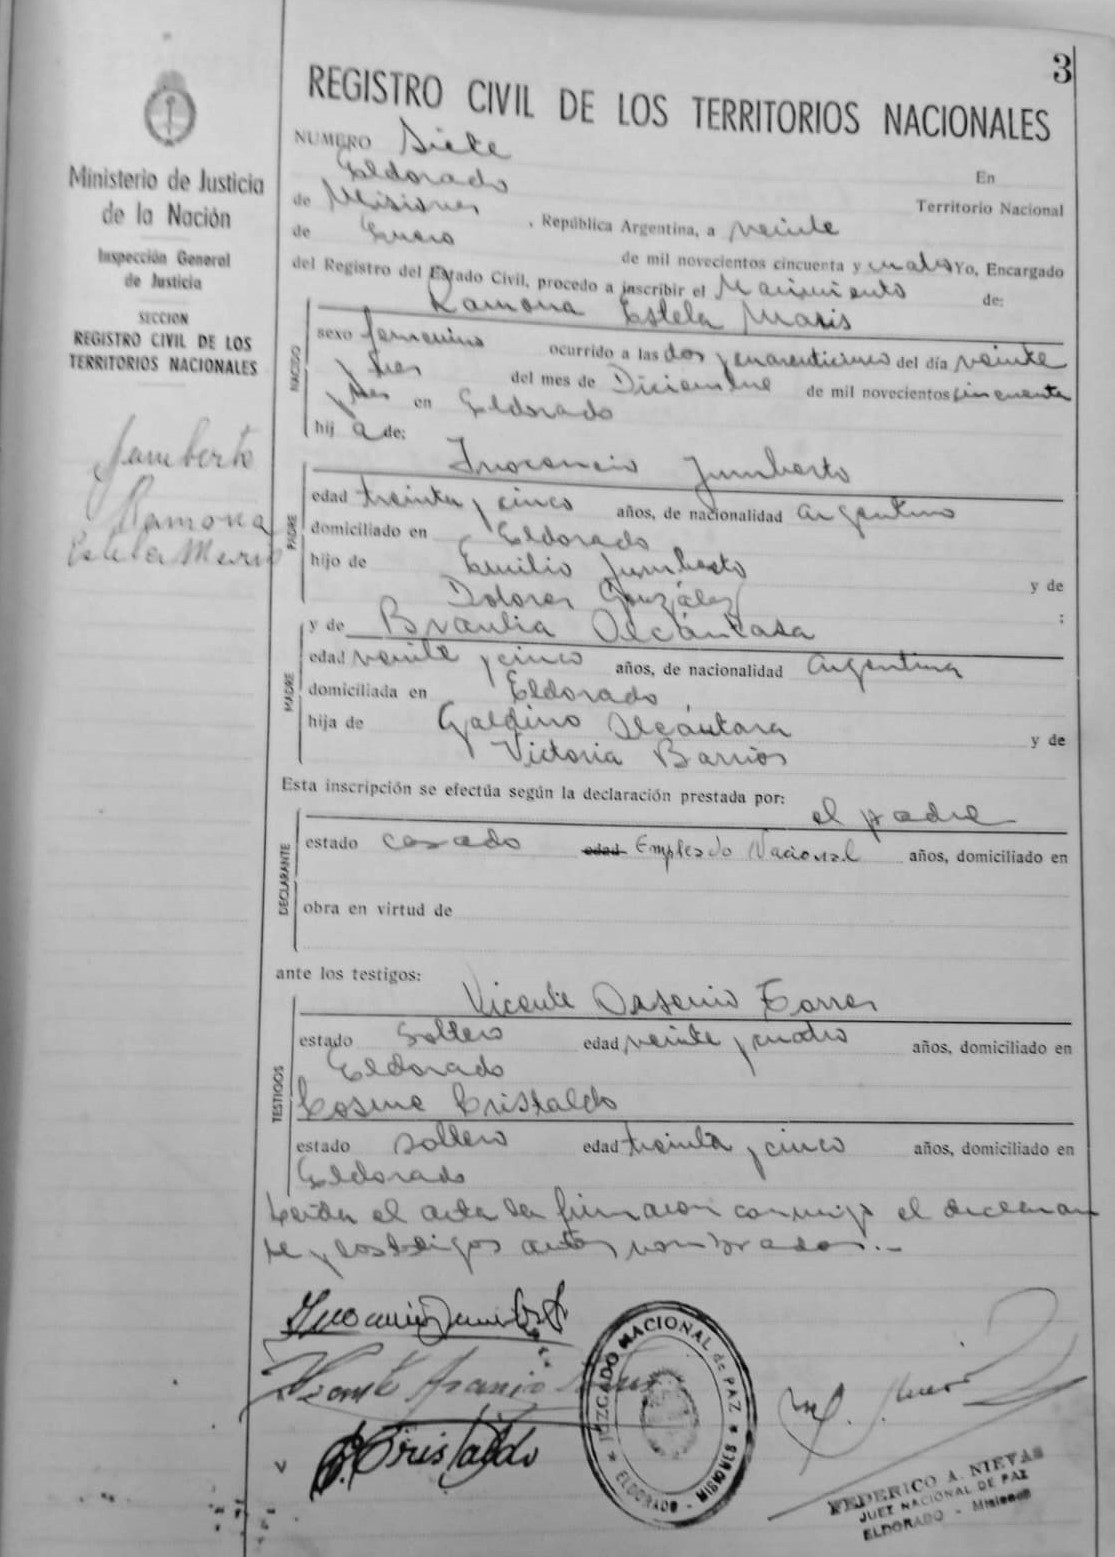 3
REGISTRO CIVIL DE LOS TERRITORIOS NACIONALES
Ministerio de Justicia
de la Nación
Inspección General
de Justicia
SECCION
REGISTRO CIVIL DE LOS
TERRITORIOS NACIONALES
Ramona
NUMERO Siete
En
Eldorado
Territorio Nacional
de Misiones, República Argentina, a veinte
de Enero de mil novecientos cincuenta y cuatro Yo, Encargado
del Registro del Estado Civil, procedo a inscribir el Nacimiento de:
Ramona Estela Maris
NACIDO
sexo femenino ocurrido a las dos y cuarenticinco del día veinte
y tres del mes de Diciembre de mil novecientos cincuenta
y tres en Eldorado
hij a de:
Inocencio Jumberto
PADRE
edad treinta y cinco años, de nacionalidad argentino
domiciliado en Eldorado
hijo de Emilio Jumberto y de
Dolores González ;
MADRE
y de Braulia Alcántara
edad veinte y cinco años, de nacionalidad argentina
domiciliada en Eldorado
hija de Galdino Alcántara y de
Victoria Barrios
Esta inscripción se efectúa según la declaración prestada por:
el padre
DECLARANTE
estado casado edad Empleado Nacional años, domiciliado en
obra en virtud de
ante los testigos:
Vicente Arsenio Torres
TESTIGOS
estado Soltero edad veinte y cuatro años, domiciliado en
Eldorado
Cosme Cristaldo
estado soltero edad treinta y cinco años, domiciliado en
Eldorado
Leida el acta la firmaron conmigo el declaran
te y los testigos antes nombrados.-
Cristaldo
JUZGADO NACIONAL de PAZ
ELDORADO - MISIONES
FEDERICO A. NIEVAS
JUEZ NACIONAL DE PAZ
ELDORADO - Misiones